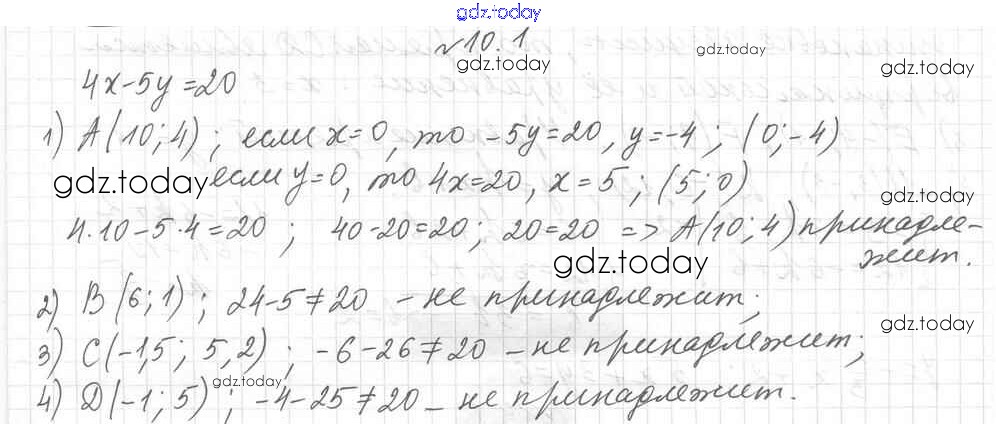 gdz.today
№10.1
gdz.today gdz.today gdz.today
4x-5y=20
1) A(10;4); если x=0, то -5y=20, y=-4; (0;-4)
gdz.today если y=0, то 4x=20, x=5; (5;0) gdz.today
4·10-5·4=20; 40-20=20; 20=20 => A(10;4) принадле-
жит.
gdz.today
2) B(6;1); 24-5≠20 - не принадлежит;
gdz.today
3) C(-1,5; 5,2); -6-26≠20 - не принадлежит;
gdz.today
4) D(-1;5); -4-25≠20 - не принадлежит.